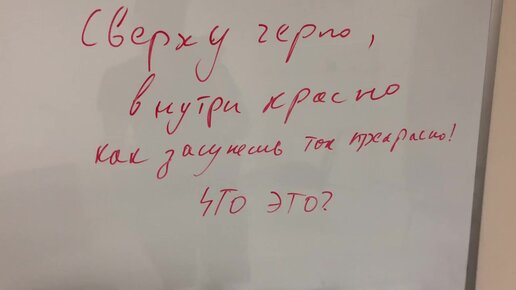 Сверху черно,
внутри красно
как засунешь так прекрасно!
Что это?